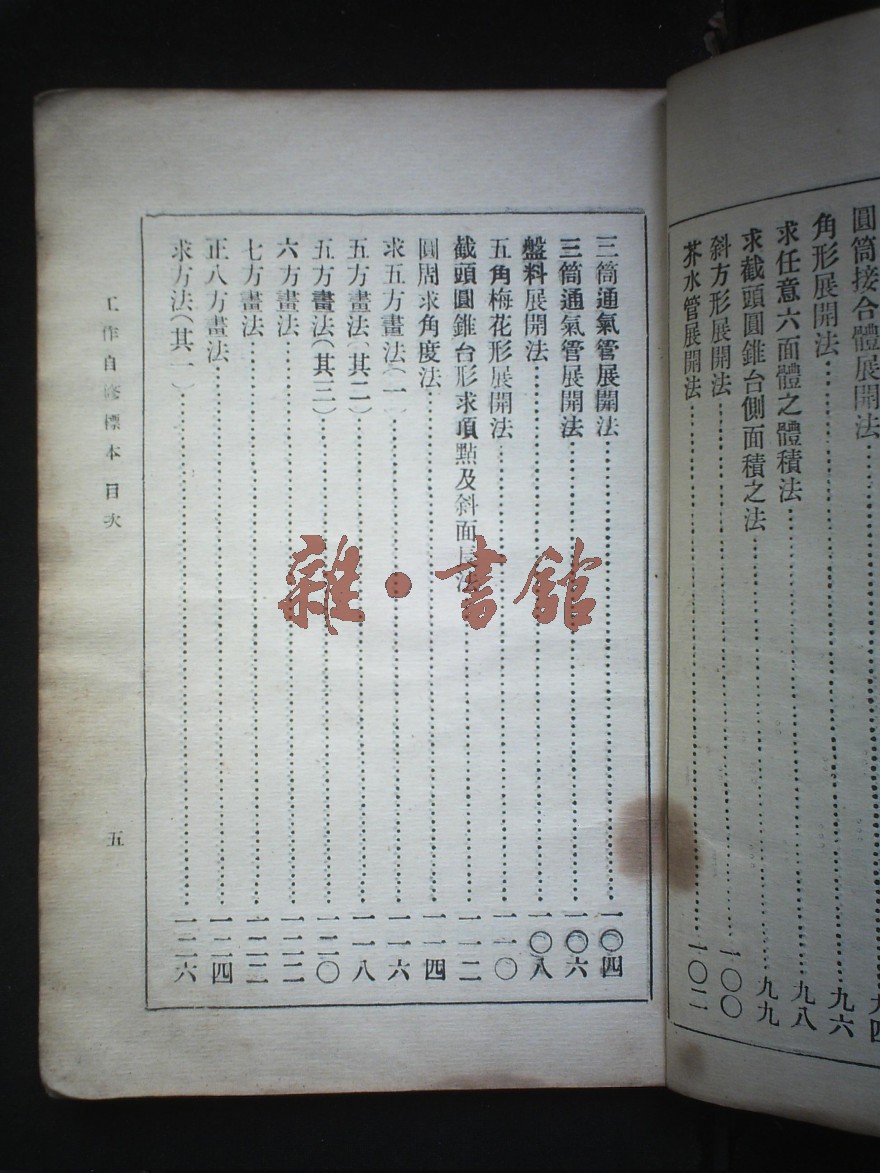 圓筒接合體展開法……九四
角形展開法……九六
求任意六面體之體積法……九八
求截頭圓錐台側面積之法……九九
斜方形展開法……一〇〇
芥水管展開法……一〇二
三筒通氣管展開法……一〇四
三筒通氣管展開法……一〇六
盤料展開法……一〇八
五角梅花形展開法……一一〇
截頭圓錐台形求項點及斜面長法……一一二
圓周求角度法……一一四
求五方畫法(一)……一一六
五方畫法(其二)……一一八
五方畫法(其三)……一二〇
六方畫法……一二二
七方畫法……一二三
正八方畫法……一二四
求方法(其一)……一二六
工作自修標本 目次 五
雜·書館